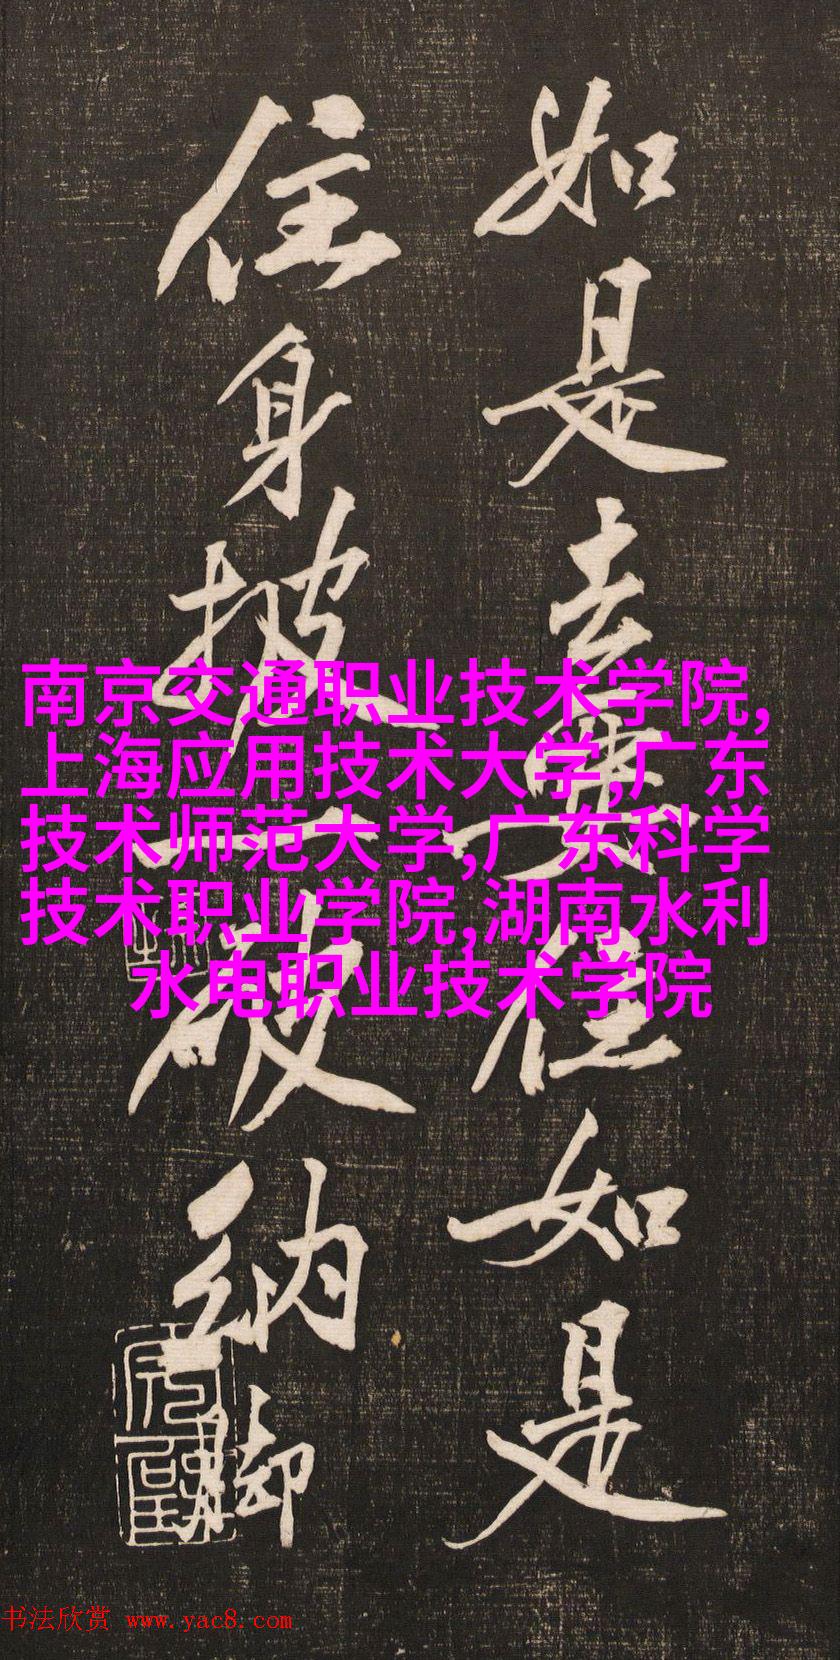 如是去来住如是
住身披一破衲脚
南京交通职业技术学院,
上海应用技术大学,广东
技术师范大学,广东科学
技术职业学院,湖南水利
水电职业技术学院
书法欣赏 www.yac8.com